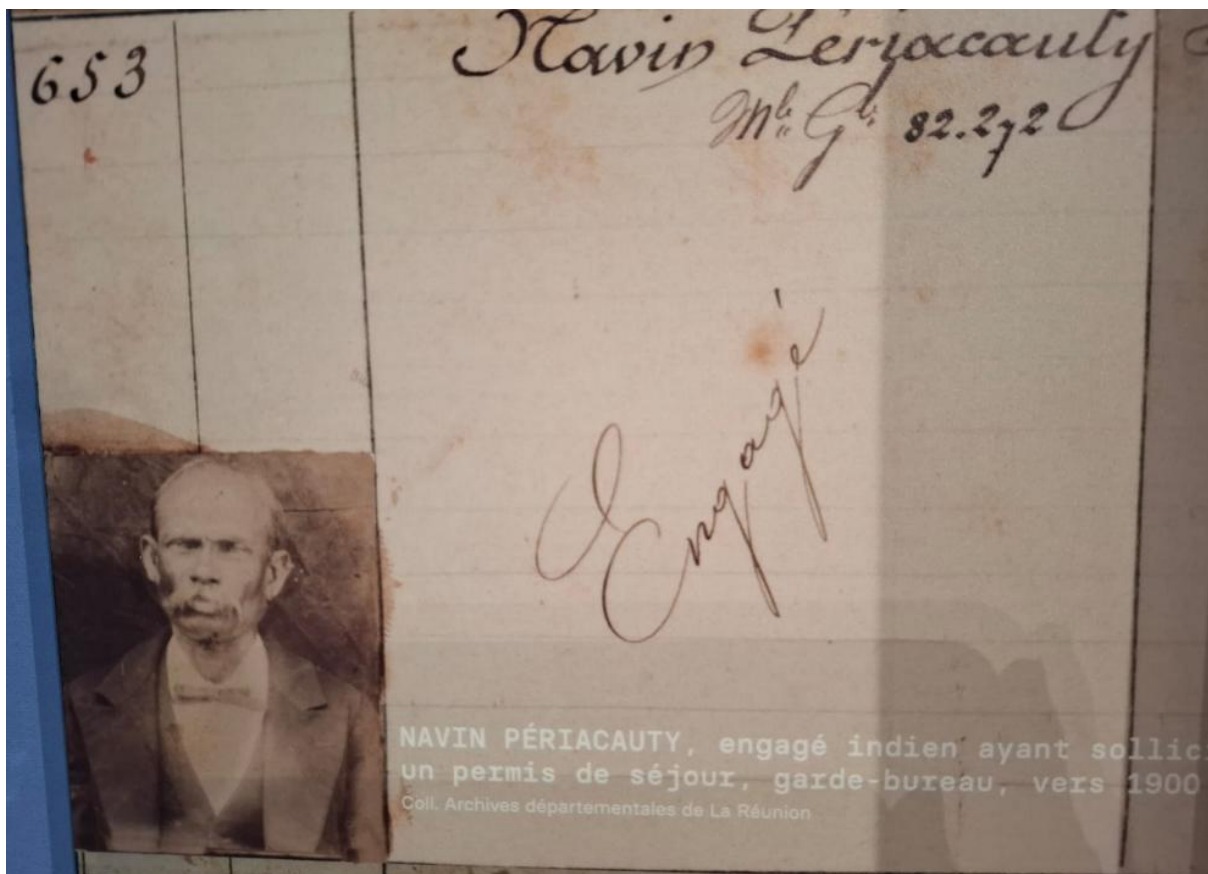 653
Navin Périacauty
Mle Gl. 82.272
Engagé
NAVIN PÉRIACAUTY, engagé indien ayant sollic
un permis de séjour, garde-bureau, vers 1900
Coll. Archives départementales de La Réunion